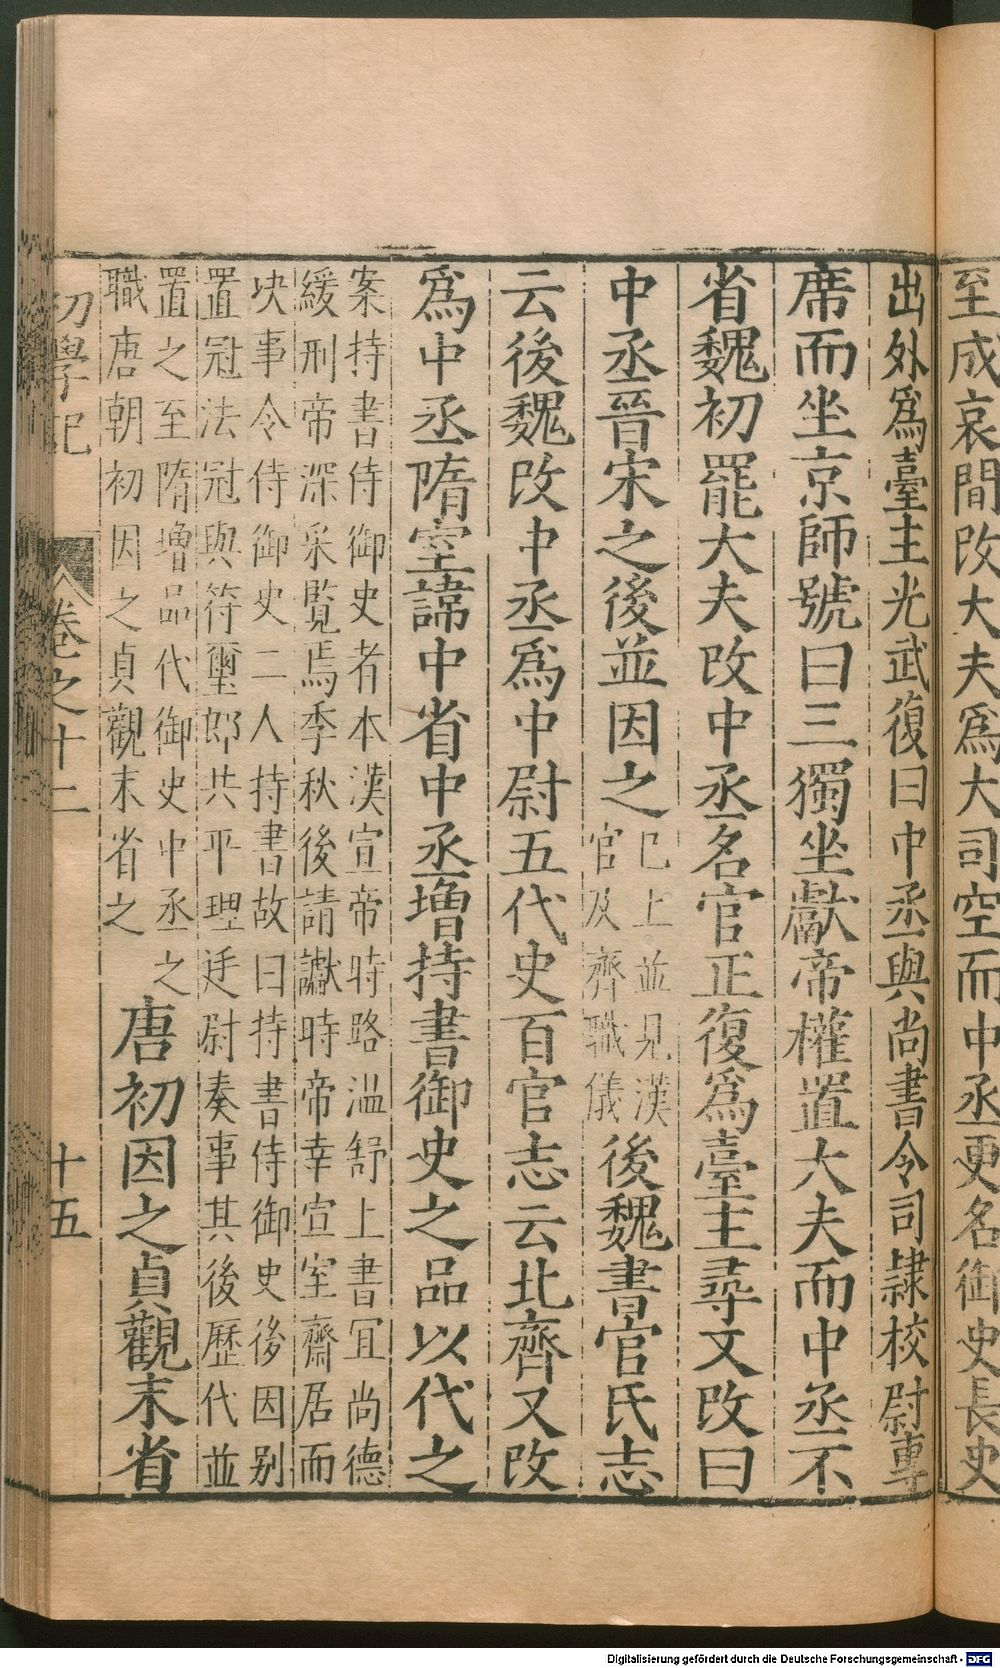 至成哀間改大夫爲大司空而中丞更名御史長史
出外爲臺主光武復曰中丞與尚書令司隸校尉專
席而坐京師號曰三獨坐獻帝權置大夫而中丞不
省魏初罷大夫改中丞名官正復爲臺主尋文改曰
中丞晉宋之後並因之
已上並見漢
官及齊職儀
後魏書官氏志
云後魏改中丞爲中尉五代史百官志云北齊又改
爲中丞隋室諱中省中丞增持書御史之品以代之
案持書侍御史者本漢宣帝時路温舒上書宜尚德
緩刑帝深采覽焉季秋後請讞時帝幸宣室齋居而
决事令侍御史二人持書故曰持書侍御史後因别
置冠法冠與符璽郎共平理廷尉奏事其後歷代並
置之至隋增品代御史中丞之
職唐朝初因之貞觀末省之
唐初因之貞觀末省
初學記
卷之十二
十五
Digitalisierung gefördert durch die Deutsche Forschungsgemeinschaft - DFG